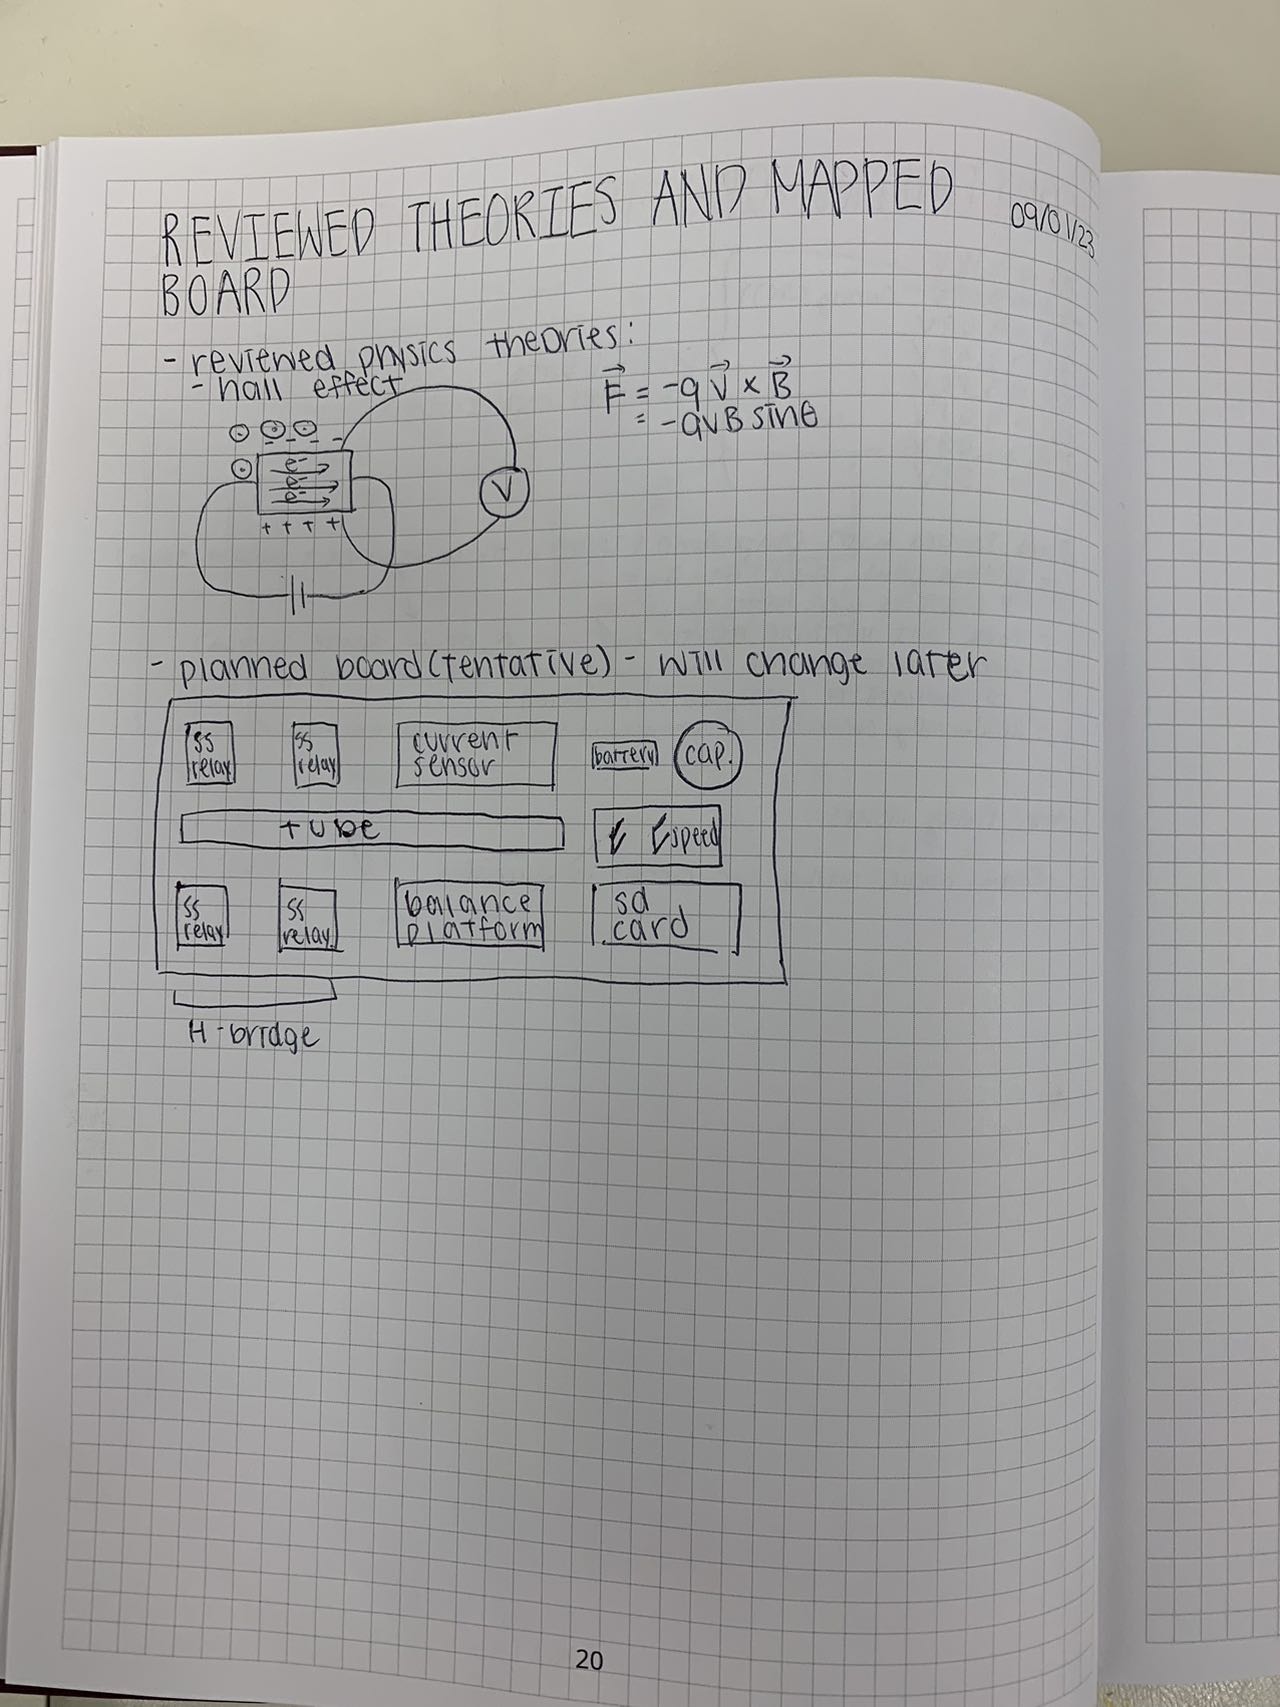 REVIEWED THEORIES AND MAPPED
BOARD
09/01/23
- reviewed physics theories:
- hall effect
F⃗ = -q v⃗ × B⃗
= -qvB sinθ
- - - -
e-
e-
e-
+ + + +
V
- planned board (tentative) - will change later
ss
relay
ss
relay
current
sensor
battery
cap.
tube
speed
ss
relay
ss
relay
balance
platform
sd
card
H-bridge
20